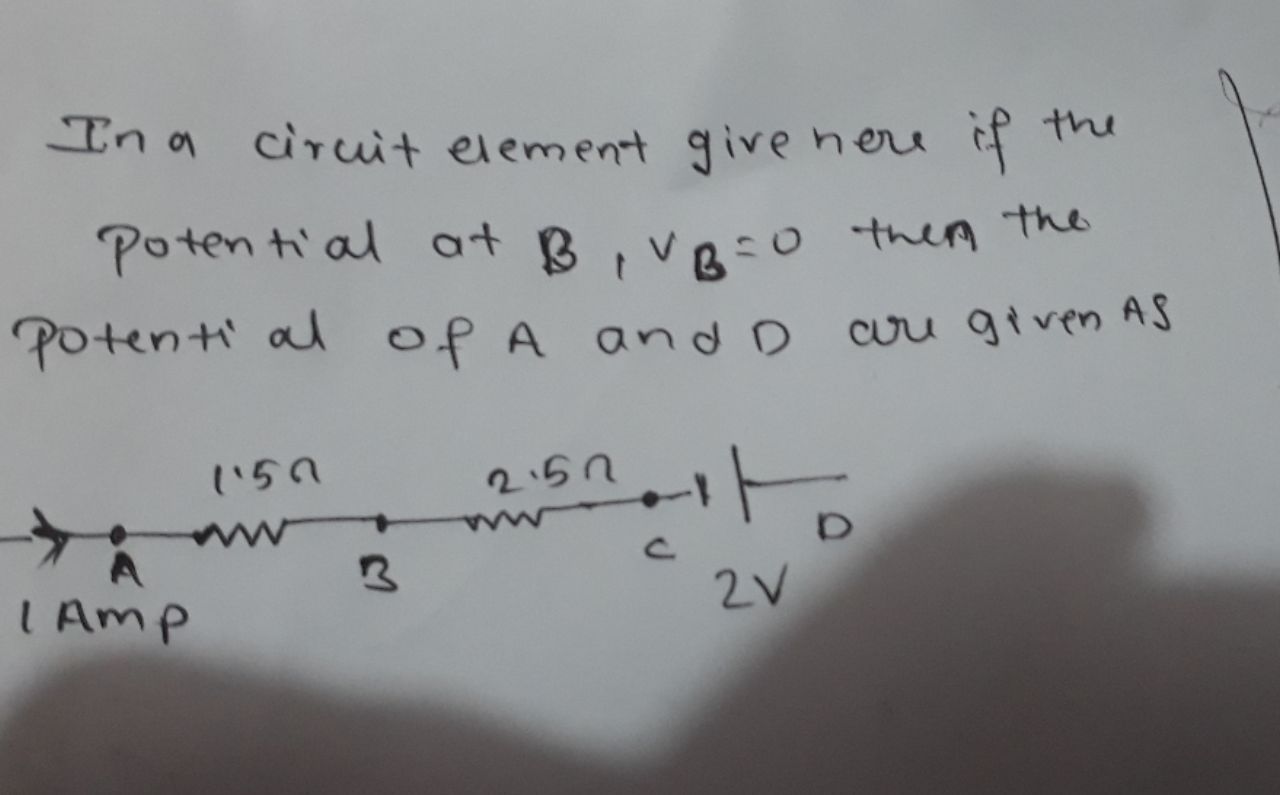 In a circuit element give here if the
potential at B, VB=0 then the
potential of A and D are given AS
1.5Ω 2.5Ω
A B C D
1 Amp 2V